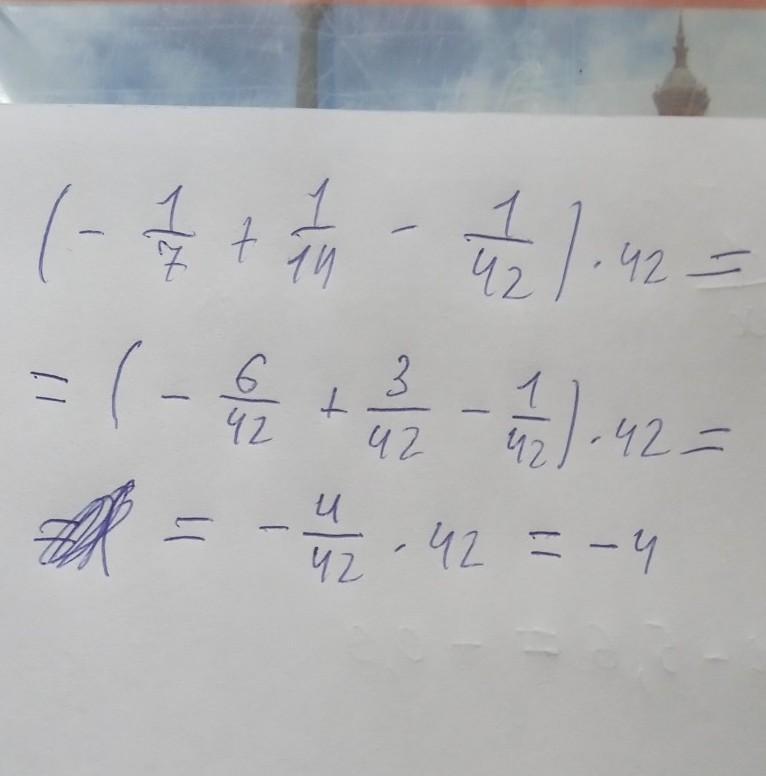 (- 1/7 + 1/14 - 1/42) · 42 =
= (- 6/42 + 3/42 - 1/42) · 42 =
= - 4/42 · 42 = -4